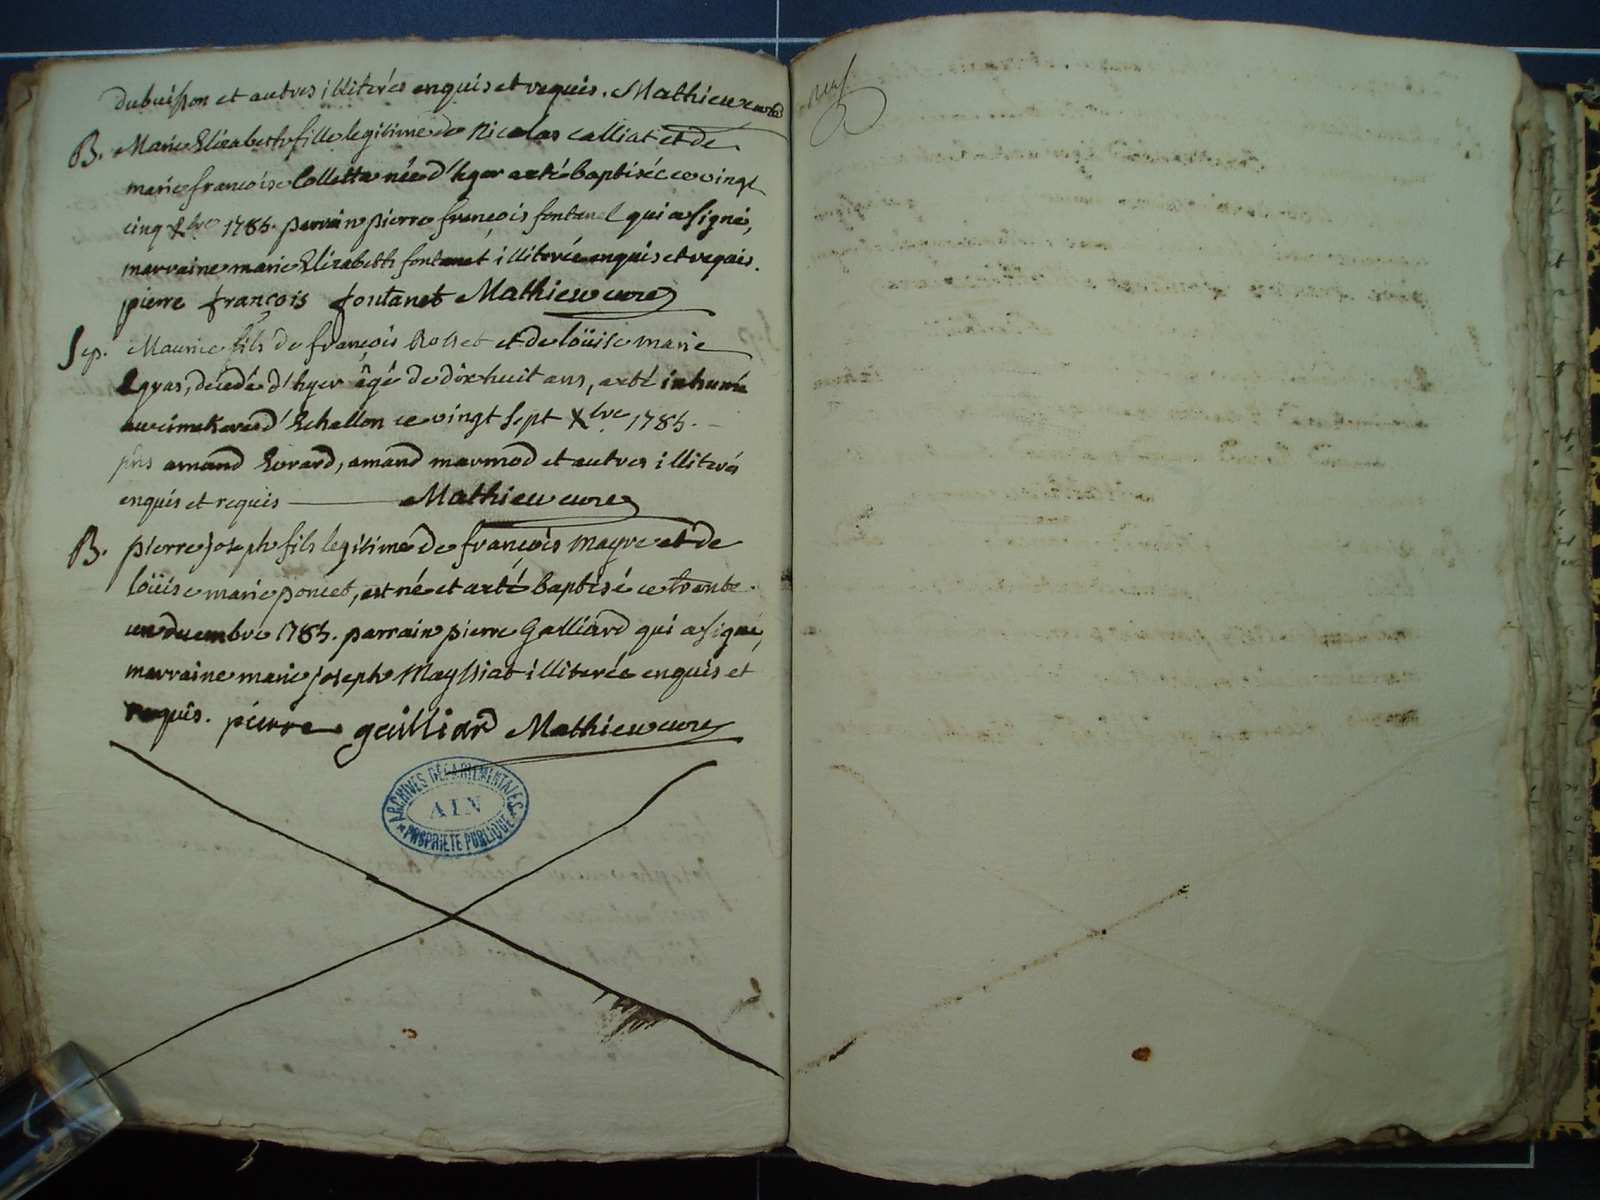 dubuisson et autres illiterés enquis et requis. Mathieu curé
B. Marie Elizabeth fille legitime de Nicolas Calliat et de
marie françoise Colletta née d'hyer aeté baptisée ce vingt
cinq Xbre 1785. parrain pierre françois fontanel qui a signé,
marraine marie Elizabeth fontanet illiterée enquis et requis.
pierre françois fontanet Mathieu curé
Sep. Maurice fils de françois Rosset et de loüise marie
Egras, décédé d'hyer âgé de dixhuit ans, aeté inhumé
au cimetiere d'Echallon ce vingt sept Xbre 1785.
pñs amand Evrard, amand marmod et autres illiterés
enquis et requis Mathieu curé
B. pierre joseph fils legitime de françois mayre et de
loüise marie poncet, est né et aeté baptisé ce trente
un decembre 1785. parrain pierre Galliard qui a signé,
marraine marie joseph Mayssiat illiterée enquis et
requis. pierre gailliard Mathieu curé
ARCHIVES DÉPARTEMENTALES
AIN
PROPRIÉTÉ PUBLIQUE